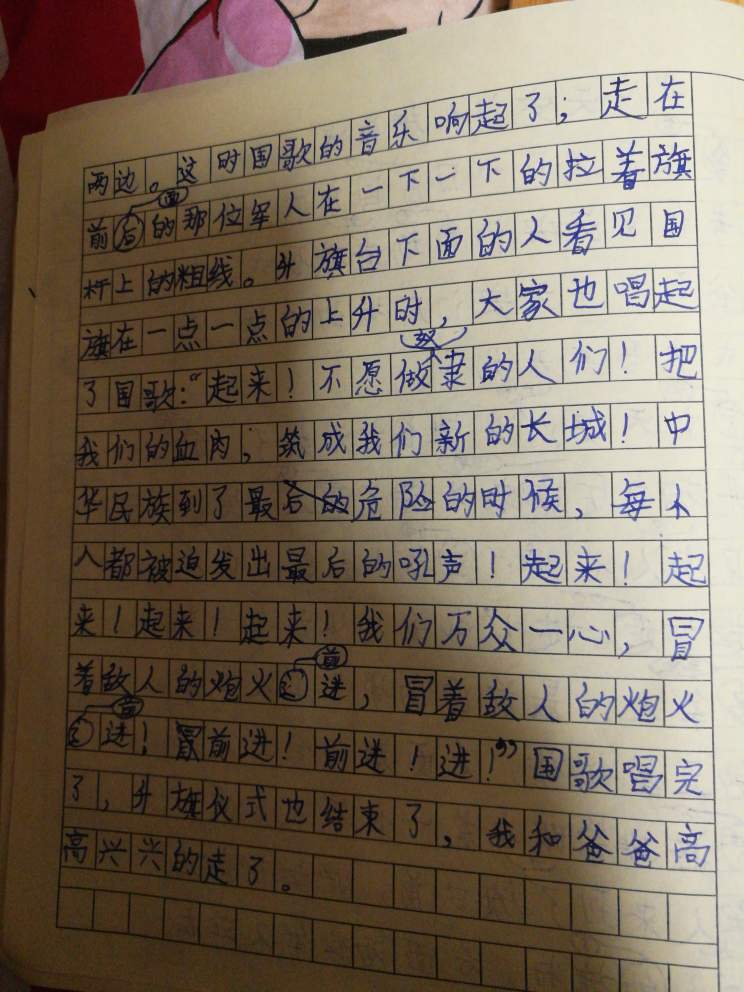 两边。这时国歌的音乐响起了；走在
前面的那位军人在一下一下的拉着旗
杆上的粗线。升旗台下面的人看见国
旗在一点一点的上升时，大家也唱起
了国歌：“起来！不愿做奴隶的人们！把
我们的血肉，筑成我们新的长城！中
华民族到了最危险的时候，每个
人都被迫发出最后的吼声！起来！起
来！起来！起来！我们万众一心，冒
着敌人的炮火前进，冒着敌人的炮火
前进！冒前进！前进！进！”国歌唱完
了，升旗仪式也结束了，我和爸爸高
高兴兴的走了。